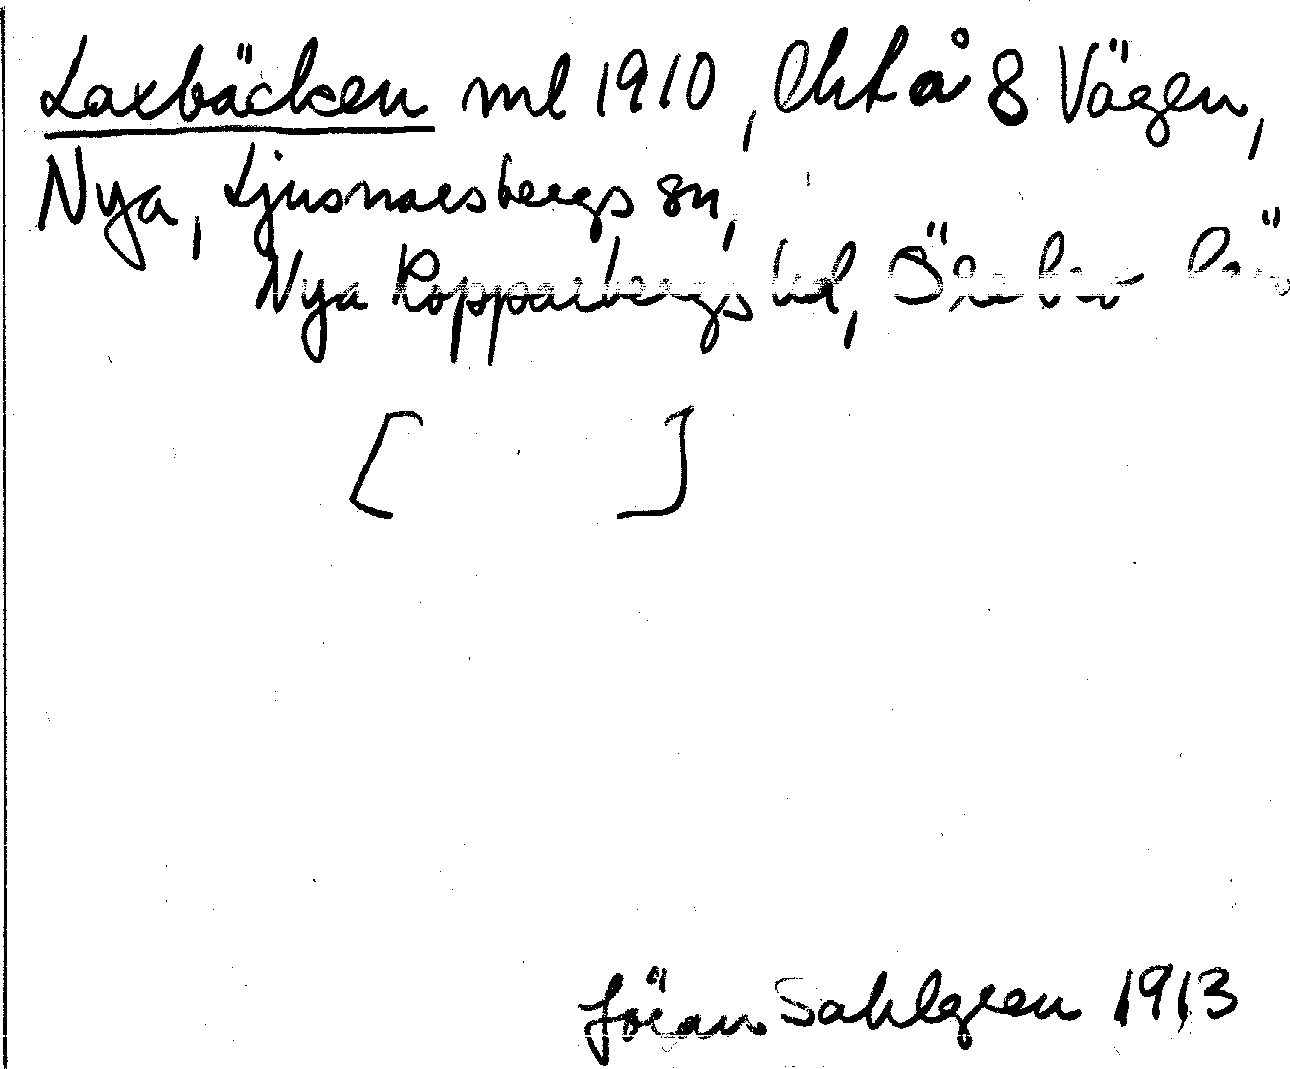 Laxbäcken ml 1910, å 8 Vägen,
Nya, Ljusnarsbergs sn,
Nya Kopparbergs hd, Örebro län
[ ]
Jöran Sahlgren 1913